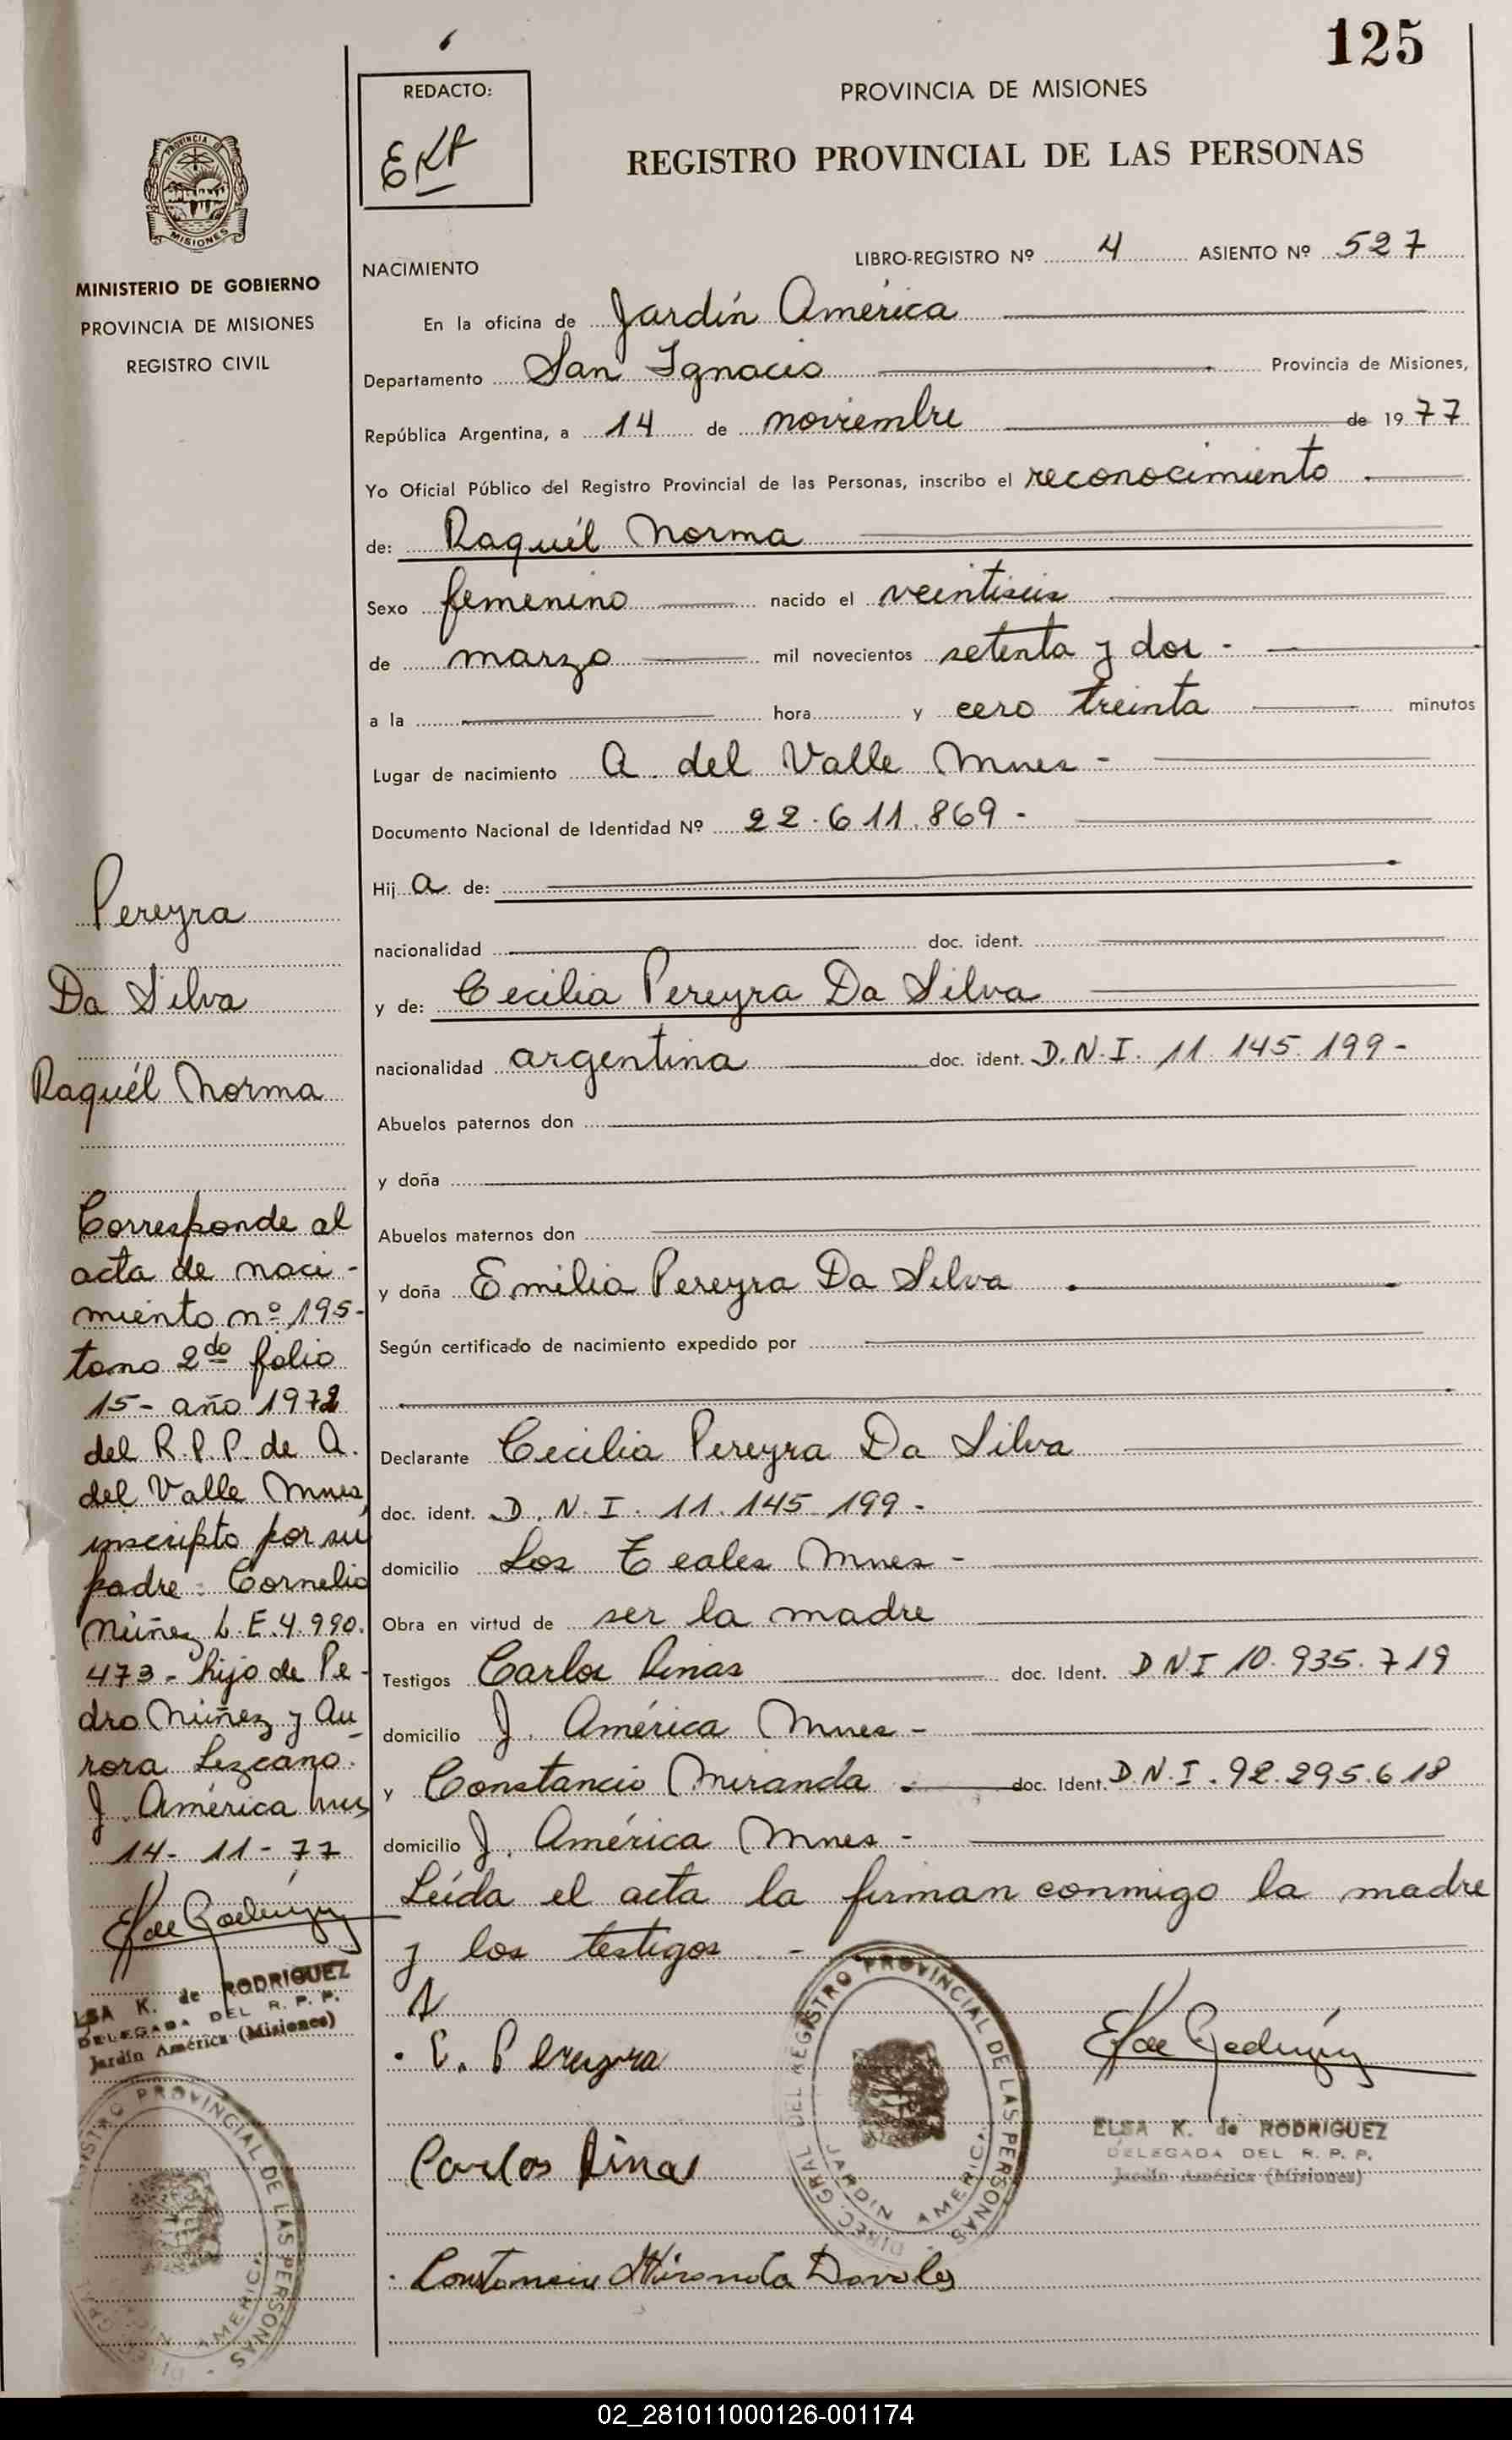 125
REDACTO:
PROVINCIA DE MISIONES
REGISTRO PROVINCIAL DE LAS PERSONAS
PROVINCIA DE
MISIONES
MINISTERIO DE GOBIERNO
PROVINCIA DE MISIONES
REGISTRO CIVIL
NACIMIENTO
LIBRO-REGISTRO Nº 4 ASIENTO Nº 527
En la oficina de Jardín América
Departamento San Ignacio Provincia de Misiones,
República Argentina, a 14 de noviembre de 1977
Yo Oficial Público del Registro Provincial de las Personas, inscribo el reconocimiento
de: Raquél Norma
Sexo femenino nacido el veintiseis
de marzo mil novecientos setenta y dos -
a la hora y cero treinta minutos
Lugar de nacimiento A. del Valle Mnes -
Documento Nacional de Identidad Nº 22.611.869 -
Hij a de:
nacionalidad doc. ident.
y de: Cecilia Pereyra Da Silva
nacionalidad argentina doc. ident. D.N.I. 11.145.199 -
Abuelos paternos don
y doña
Abuelos maternos don
y doña Emilia Pereyra Da Silva
Según certificado de nacimiento expedido por
Declarante Cecilia Pereyra Da Silva
doc. ident. D.N.I. 11.145.199 -
domicilio Los Teales Mnes -
Obra en virtud de ser la madre
Testigos Carlos Rinas doc. Ident. DNI 10.935.719
domicilio J. América Mnes -
y Constancio Miranda doc. Ident. D.N.I. 92.295.618
domicilio J. América Mnes -
Leída el acta la firman conmigo la madre
y los testigos. -
C. Pereyra
Carlos Rinas
Miranda
DIREC. GRAL. DEL REGISTRO PROVINCIAL DE LAS PERSONAS
JARDIN AMERICA
ELSA K. de RODRIGUEZ
DELEGADA DEL R. P. P.
Jardín América (Misiones)
Pereyra
Da Silva
Raquél Norma
Corresponde al
acta de naci-
miento nº 195-
tomo 2do folio
15- año 1972
del R.P.P. de A.
del Valle Mnes,
inscripto por su
padre: Cornelio
Núñez L.E. 4.990.
473 - hijo de Pe-
dro Núñez y Au-
rora Lezcano.
J. América Mnes
14-11-77
ELSA K. de RODRIGUEZ
DELEGADA DEL R. P. P.
Jardín América (Misiones)
REGISTRO PROVINCIAL DE LAS PERSONAS
AMERICA
02_281011000126-001174